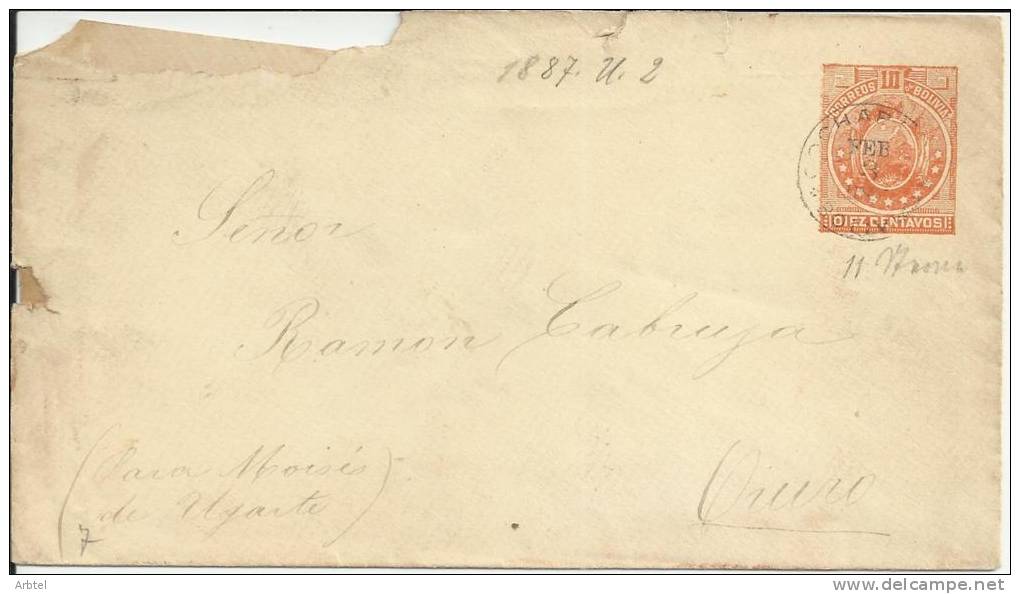 1887. U. 2
10
CORREOS DE BOLIVIA
COCHAB
FEB
DIEZ CENTAVOS
11
Señor
Ramon Cabruja
(Para Moisés
de Ugarte)
Oruro
7
Arbtel
www.delcampe.net